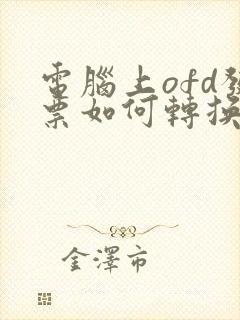 電腦上ofd發
票如何轉換
金澤市